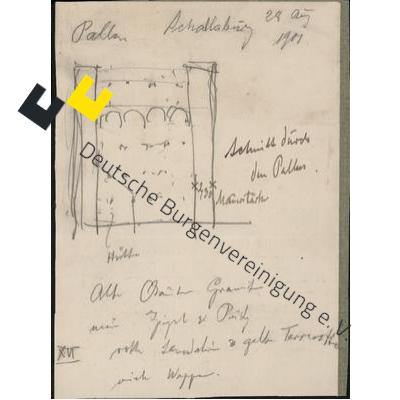 Pallas Schallaburg 28 Aug
1901
Schnitt durch
den Pallas.
Mauerstärke
Hütte
Deutsche Burgenvereinigung e. V.
Alte Granit
Ziegel & Putz
rothe & gelbe Terracotta
XVI
Wappen.